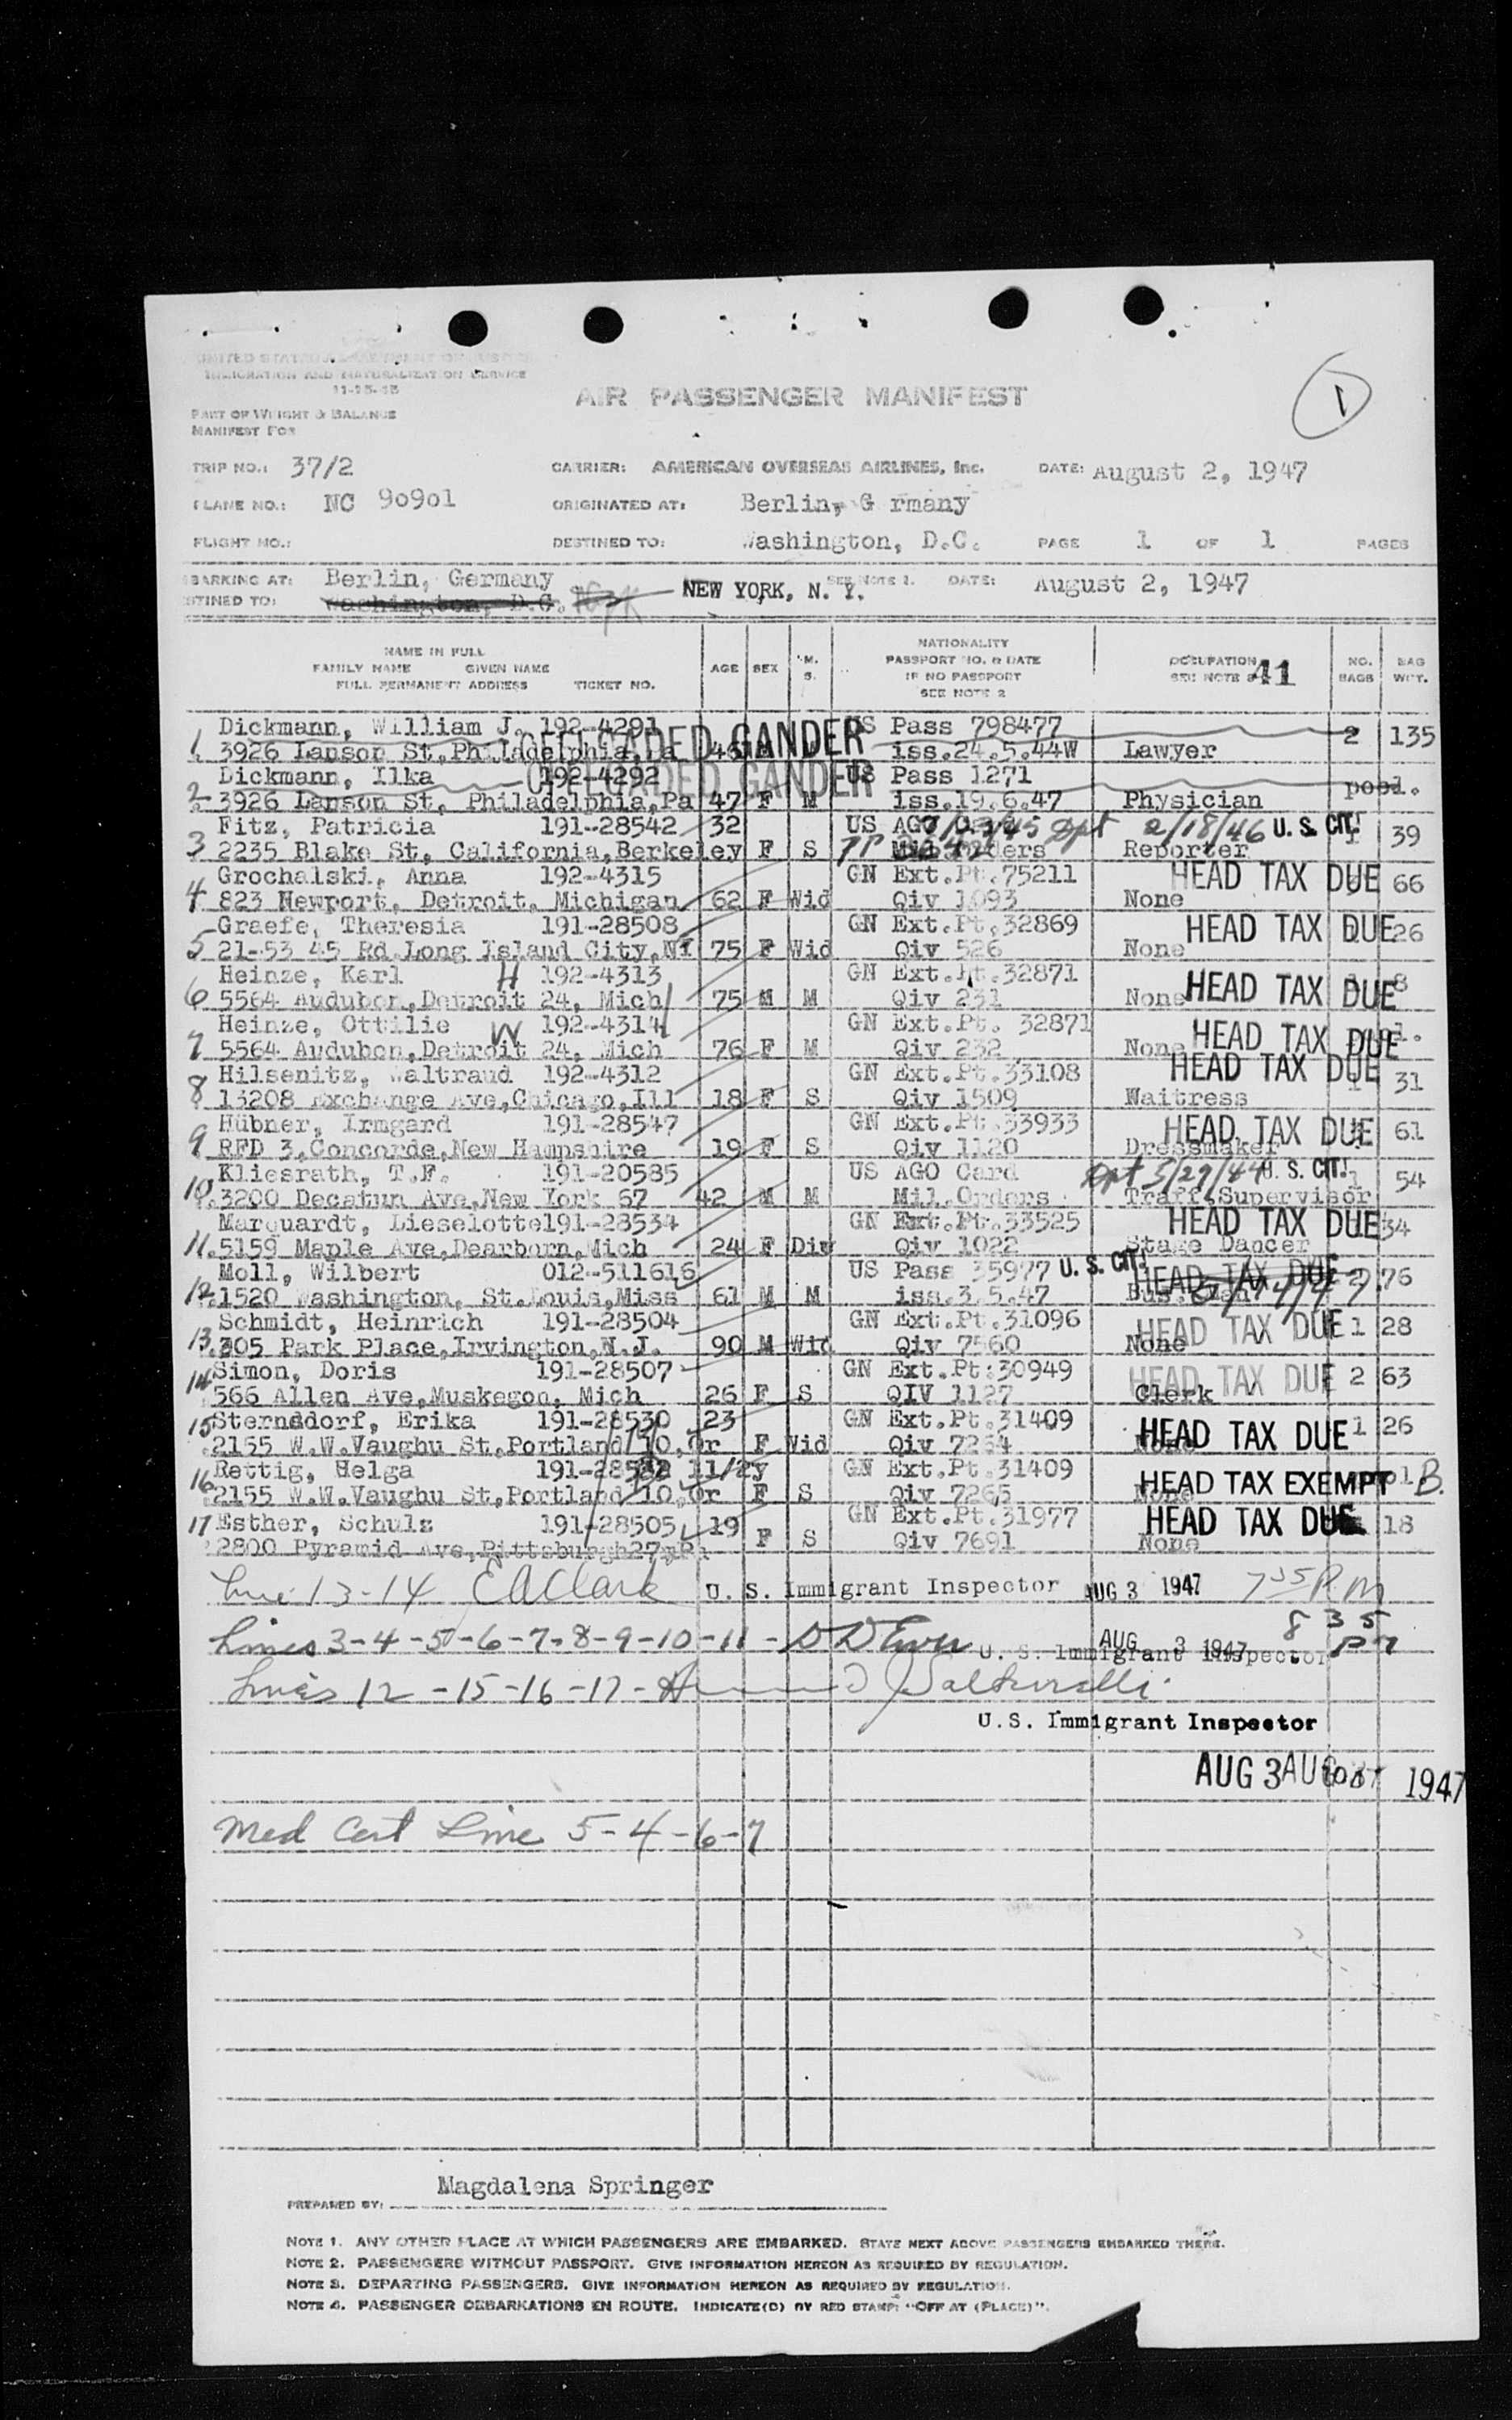 UNITED STATES DEPARTMENT OF JUSTICE
IMMIGRATION AND NATURALIZATION SERVICE
11-15-45
AIR PASSENGER MANIFEST
1
PART OF WEIGHT & BALANCE
MANIFEST FOR
TRIP NO.: 37/2 CARRIER: AMERICAN OVERSEAS AIRLINES, Inc. DATE: August 2, 1947
PLANE NO.: NC 90901 ORIGINATED AT: Berlin, G rmany
FLIGHT NO.: DESTINED TO: Washington, D.C. PAGE 1 OF 1 PAGES
BARKING AT: Berlin, Germany SEE NOTE 1. DATE: August 2, 1947
STINED TO: Washington, D.C. NEW YORK, N. Y.
NAME IN FULL
FAMILY NAME GIVEN NAME
FULL PERMANENT ADDRESS TICKET NO.
AGE SEX M. S.
NATIONALITY
PASSPORT NO. & DATE
IF NO PASSPORT
SEE NOTE 2
OCCUPATION
SEE NOTE 41
NO. BAGS
BAG WGT.
Dickmann, William J. 192-4291 US Pass 798477
OFFLOADED GANDER
1. 3926 Lanson St, Philadelphia, Pa 46 iss.24.5.44W Lawyer 2 135
Dickmann, Ilka 192-4292 US Pass 1271
OFFLOADED GANDER
2 3926 Lanson St, Philadelphia,Pa 47 F M iss.19.6.47 Physician pool.
Fitz, Patricia 191-28542 32 US AGO Dpt 2/18/46 U. S. CIT! 1 39
3 2235 Blake St, California,Berkeley F S PP Mil.Orders Reporter
Grochalski, Anna 192-4315 GN Ext.Pt.75211 HEAD TAX DUE 66
4 823 Newport, Detroit, Michigan 62 F Wid Qiv 1093 None
Graefe, Theresia 191-28508 GN Ext.Pt.32869 HEAD TAX DUE 26
5 21-53 45 Rd.Long Island City,NY 75 F Wid Qiv 526 None
Heinze, Karl H 192-4313 GN Ext.Pt.32871
6 5564 Audubon,Detroit 24, Mich 75 M M Qiv 231 None HEAD TAX DUE 8
Heinze, Ottilie W 192-4314 GN Ext.Pt. 32871
7 5564 Audubon,Detroit 24, Mich 76 F M Qiv 232 None HEAD TAX DUE
Hilsenitz, Waltraud 192-4312 GN Ext.Pt.33108 HEAD TAX DUE 1 31
8 13208 Exchange Ave,Chicago,Ill 18 F S Qiv 1509 Waitress
Hübner, Irmgard 191-28547 GN Ext.Pt.33933 HEAD TAX DUE 61
9 RFD 3,Concorde,New Hampshire 19 F S Qiv 1120 Dressmaker
Kliesrath, T.F. 191-20585 US AGO Card Dpt 5/29/44 U. S. CIT! 1 54
10. 3200 Decatun Ave,New York 67 42 M M Mil.Orders Traff.Supervisor
Marquardt, Lieselotte191-28534 GN Ext.Pt.33525 HEAD TAX DUE 34
11. 5159 Maple Ave,Dearborn,Mich 24 F Div Qiv 1022 Stage Dancer
Moll, Wilbert 012-511616 US Pass 35977 U. S. CIT! HEAD TAX DUE 2 76
12. 1520 Washington, St.Louis,Miss 61 M M iss.3.5.47
Schmidt, Heinrich 191-28504 GN Ext.Pt.31096 HEAD TAX DUE 1 28
13. 305 Park Place,Irvington,N.J. 90 M Wid Qiv 7560 None
Simon, Doris 191-28507 GN Ext.Pt:30949 HEAD TAX DUE 2 63
14 566 Allen Ave,Muskegon, Mich 26 F S QIV 1127 Clerk
15 Sternsdorf, Erika 191-28530 23 GN Ext.Pt.31409 HEAD TAX DUE 1 26
2155 W.W.Vaughu St,Portland 10,Or F Wid Qiv 7264 None
16 Rettig, Helga 11/2y GN Ext.Pt.31409 HEAD TAX EXEMPT B.
2155 W.W.Vaughu St,Portland 10,Or F S Qiv 7265 None
17 Esther, Schulz 191-28505 19 GN Ext.Pt.31977 HEAD TAX DUE 18
2800 Pyramid Ave,Pittsburgh27,Pa F S Qiv 7691 None
Line 13-14 E A Clark U. S. Immigrant Inspector AUG 3 1947 7 35 P.M
Lines 3-4-5-6-7-8-9-10-11 - AUG 3 1947 8 35 PM
U. S. Immigrant Inspector
Lines 12-15-16-17-
U.S. Immigrant Inspector
AUG 3 AUG 1947
Med Cert Line 5-4-6-7
Magdalena Springer
PREPARED BY:
NOTE 1. ANY OTHER PLACE AT WHICH PASSENGERS ARE EMBARKED. STATE NEXT ABOVE PASSENGERS EMBARKED THERE.
NOTE 2. PASSENGERS WITHOUT PASSPORT. GIVE INFORMATION HEREON AS REQUIRED BY REGULATION.
NOTE 3. DEPARTING PASSENGERS. GIVE INFORMATION HEREON AS REQUIRED BY REGULATION.
NOTE 4. PASSENGER DEBARKATIONS EN ROUTE. INDICATE(D) BY RED STAMP: "OFF AT (PLACE)".